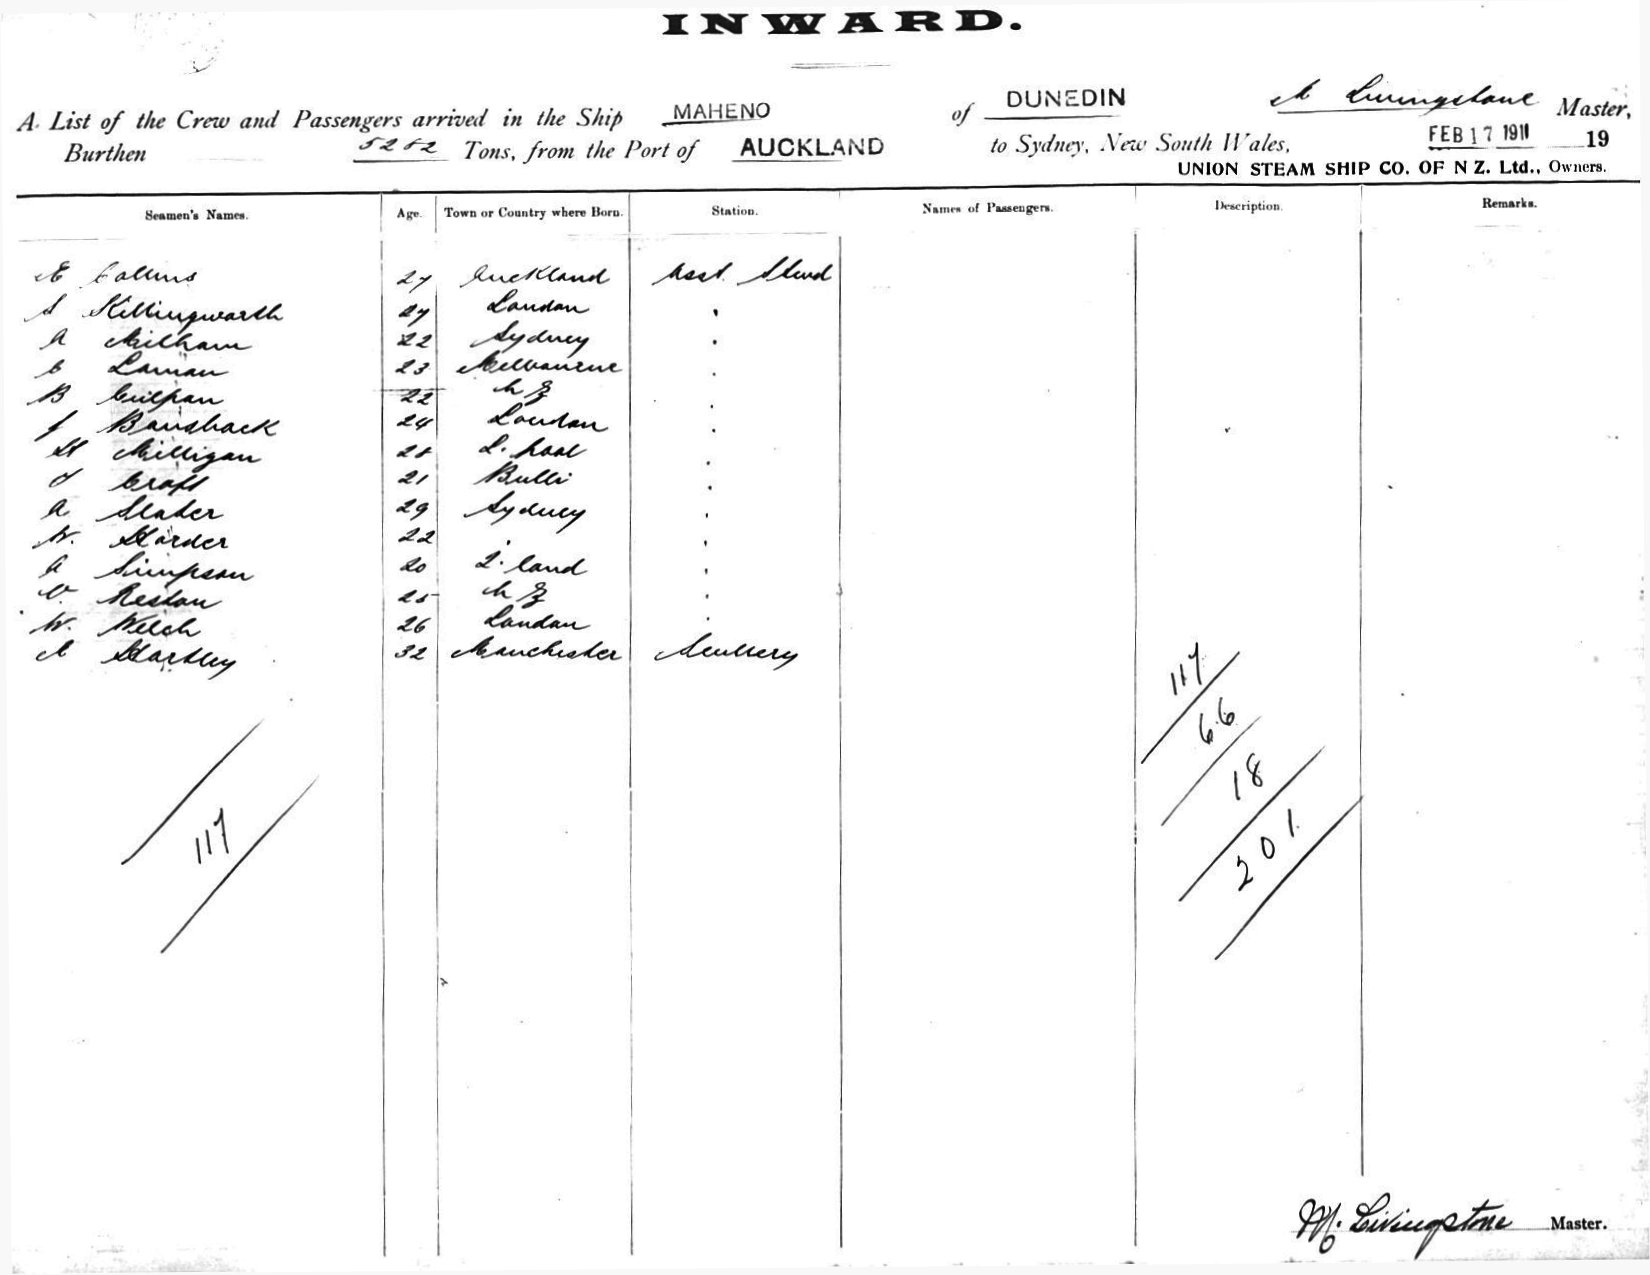 INWARD.
A List of the Crew and Passengers arrived in the Ship MAHENO of DUNEDIN M Livingstone Master,
Burthen 5282 Tons, from the Port of AUCKLAND to Sydney, New South Wales, FEB 17 1911 19
UNION STEAM SHIP CO. OF N Z. Ltd., Owners.
Seamen's Names. Age. Town or Country where Born. Station. Names of Passengers. Description. Remarks.
E Collins 27 Auckland Asst. Stwd
S Killingworth 27 London "
A Milham 22 Sydney "
C Laman 23 Melbourne "
B Culpan 22 N Z "
J Bansback 24 London "
H Milligan 28 L. pool "
J Craft 21 Bulli "
A Slater 29 Sydney "
W. Harder 22 " "
A Simpson 20 Q. land "
V. Reston 25 N Z "
W. Welch 26 London "
A Hartley 32 Manchester Scullery
117
66
18
201
117
M. Livingstone Master.